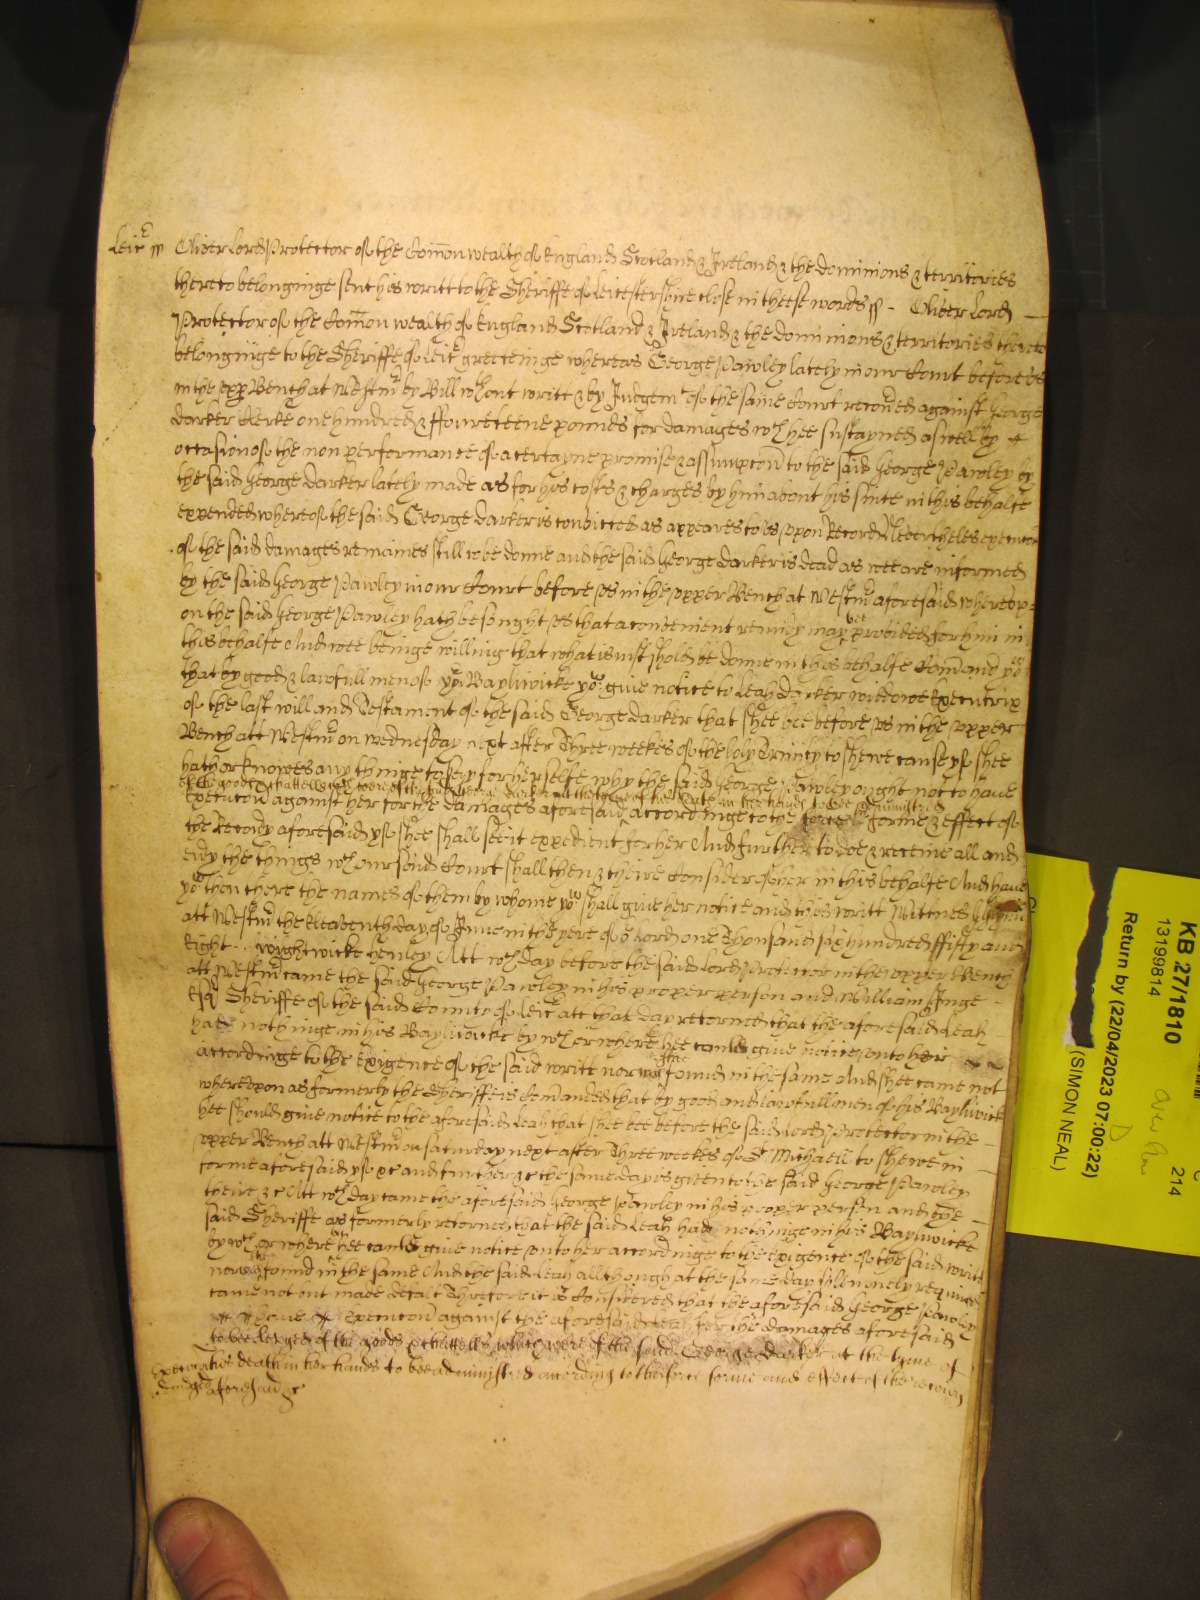 Leic ss Oliver Lord Protector of the Comon wealth of England Scotland & Ireland & the dominions & territories
thereto belonginge sent his writt to the Sheriffe of Leicestershire close in theese words ss - Oliver Lord
Protector of the Comon wealth of England Scotland & Ireland & the dominions & territories thereto
belonginge to the Sheriffe of Leic greeteinge whereas George Pawley lately in our Court before us
in the upp Bench at Westmr by Bill wthout writt & by Judgemt of the same Court recoved against George
Darker Clerke one hundred & ffoureteene pounds for damages wch hee sustayned as well by
occasion of the non performance of a certayne promise & assumpcon to the said George Pawley by
the said George Darker lately made as for his costs & charges by him about his suite in this behalfe
expended whereof the said George Darker is convicted as appeares to us upon Record Neevertheles execucon
of the said damages remaines still to be donne and the said George Darker is dead as wee are informed
by the said George Pawley in our Court before us in the upper Bench at Westmr aforesaid whereup-
on the said George Pawley hath besought us that a convenient remidy may bee provided for him in
this behalfe And wee beinge willing that what is just shold be donne in this behalfe Comand you
that by good & lawfull men of yor Bayliwicke you give notice to Leah Darker widdowe Executrix
of the last will and Testament of the said George Darker that shee bee before us in the upper
Bench att Westmr on wednesday next after Three weekes of the holy Trinity to shewe cause yf shee
hath or knowes any thinge to say for her selfe why the said George Pawley ought not to have
of the goods & chattells wch were of the said George Darker att the tyme of his death in her hands to bee administred
Execucon against her for the damages aforesaid accordinge to the force forme & effect of
the Recovy aforesaid yf shee shall see it expedient for her And further to doe & receive all and
evy the things wch our said Court shall then & there Consider of her in this behalfe And have
you then there the names of them by whome you shall give her notice and this writt Wittnes
att Westmr the Eleaventh day of June in the yere of or Lord one Thousand six hundred ffifty and
Eight. Wightwicke Henley Att wch day before the said Lord Protector in the upper Bench
att Westmr came the said George Pawley in his proper person and William Inge
Esqr Sheriffe of the said County of Leic att that day retorned that the aforesaid Leah
hadd nothinge in his Bayliwicke by wch or where hee could give notice unto her
accordinge to the Exigence of the said writt nor was shee found in the same And shee came not
whereupon as formerly the Sheriffe is Comanded that by good and lawfull men of his Bayliwick
hee should give notice to the aforesaid Leah that shee bee before the said Lord Protector in the
upper Bench att Westmr on Saturday next after Three weekes of St Michaell to shewe in
forme aforesaid yf &c and further &c the same day is given to the said George Pawley
there &c Att wch day came the aforesaid George Pawley in his proper person and the
said Sheriffe as formerly retorned that the said Leah hadd nothinge in his Bayliwicke
by wch or where hee could give notice unto her accordinge to the exigence of the said writt
nor was shee found in the same And the said Leah allthough at the same day sollemnely required
came not but made defalt Therefore it is Considered that the aforesaid George Pawley
have Execucon against the aforesaid Leah for the damages aforesaid
to bee levyed of the goods & chattells which were of the said George Darker at the tyme of
his death in her hands to bee administred according to the force forme and effect of the recovy
aforesaid &c
KB 27/1810
13199814
Return by (22/04/2023 07:00:22)
(SIMON NEAL)
214